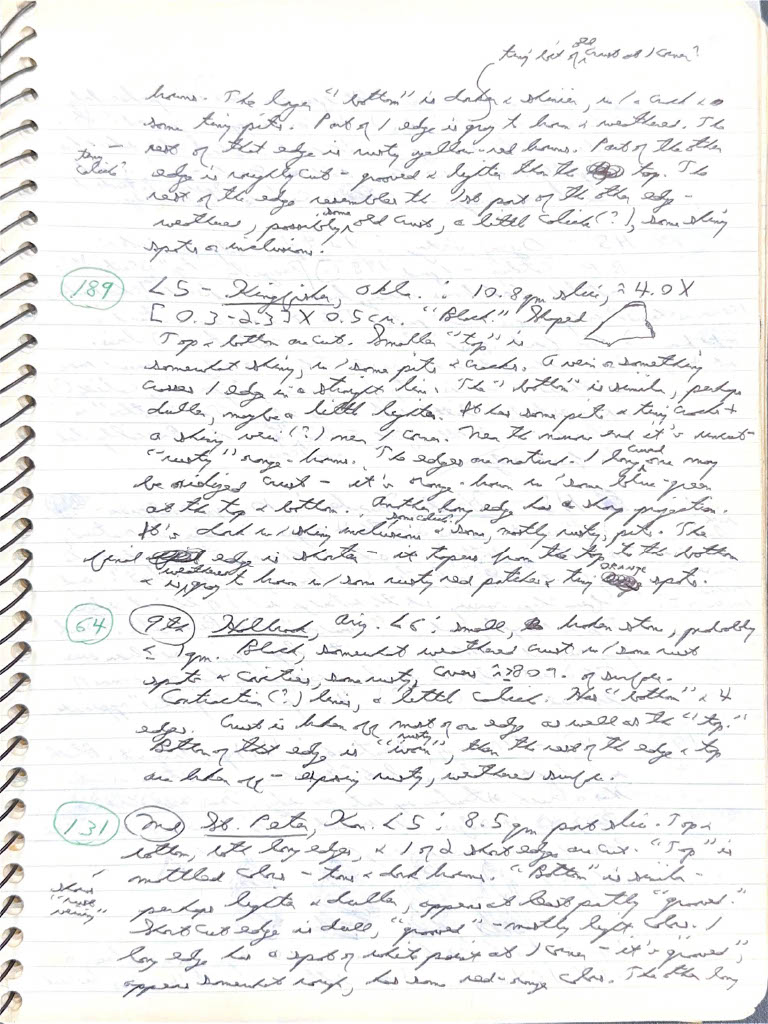 tiny bit of old crust at 1 corner?
brown. The larger "bottom" is darker & shinier, w/ a crack & 
some tiny pits. Part of 1 edge is gray to brown & weathered. The
rest of that edge is rusty yellow-red brown. Part of the other
tiny "click"
edge is roughly cut - grooved & lighter than the top. The
rest of the edge resembles the 1st part of the other edge -
weathered, possibly some old crust, a little click (?), some shiny
spots or inclusions.
189 L5 - Kingfisher, Okla.: 10.8 gm slice, ≈ 4.0 X
[0.3-2.3] X 0.5 cm. "Black." Shaped
Top & bottom are cut. Smaller "top" is
somewhat shiny, w/ some pits & cracks. A vein or something
crosses 1 edge in a straight line. The "bottom" is similar, perhaps
duller, maybe a little lighter. It has some pits & tiny cracks &
a shiny vein (?) near 1 corner. Near the narrow end it's uncut -
"rusty" orange-brown. The edges are natural. 1 long curved one may
be oxidized crust - it's orange-brown w/ some blue-green
at the top & bottom. Another long edge has a sharp projection.
It's dark w/ shiny inclusions, some click & some, mostly rusty, pits. The
final edge is shorter - it tapers from the top to the bottom
& is weathered gray to brown w/ some rusty red patches & tiny ORANGE spots.
64 9th Holbrook, Ariz. L6: small, broken stone, probably
≤ 1 gm. Black, somewhat weathered crust w/ some rust
spots & cavities, some rusty, covers ≈ ≥80% of surface.
Contraction (?) lines, a little click. Has "bottom" & 4
edges. Crust is broken off most of one edge as well as the "top."
Bottom of that edge is rusty "iron", then the rest of the edge & top
are broken off - exposing rusty, weathered surface.
131 2nd St. Peter, Kan. L5: 8.5 gm part slice. Top &
bottom, both long edges, & 1 of 2 short edges are cut. "Top" is
mottled colors - tans & dark browns. "Bottom" is similar -
perhaps lighter & duller, appears at least partly "grooved."
Short cut edge is dull, "grooved" - mostly light color. 1
long edge has a spot of white paint at 1 corner - it's "grooved",
appears somewhat rough, has some red-orange color. The other long